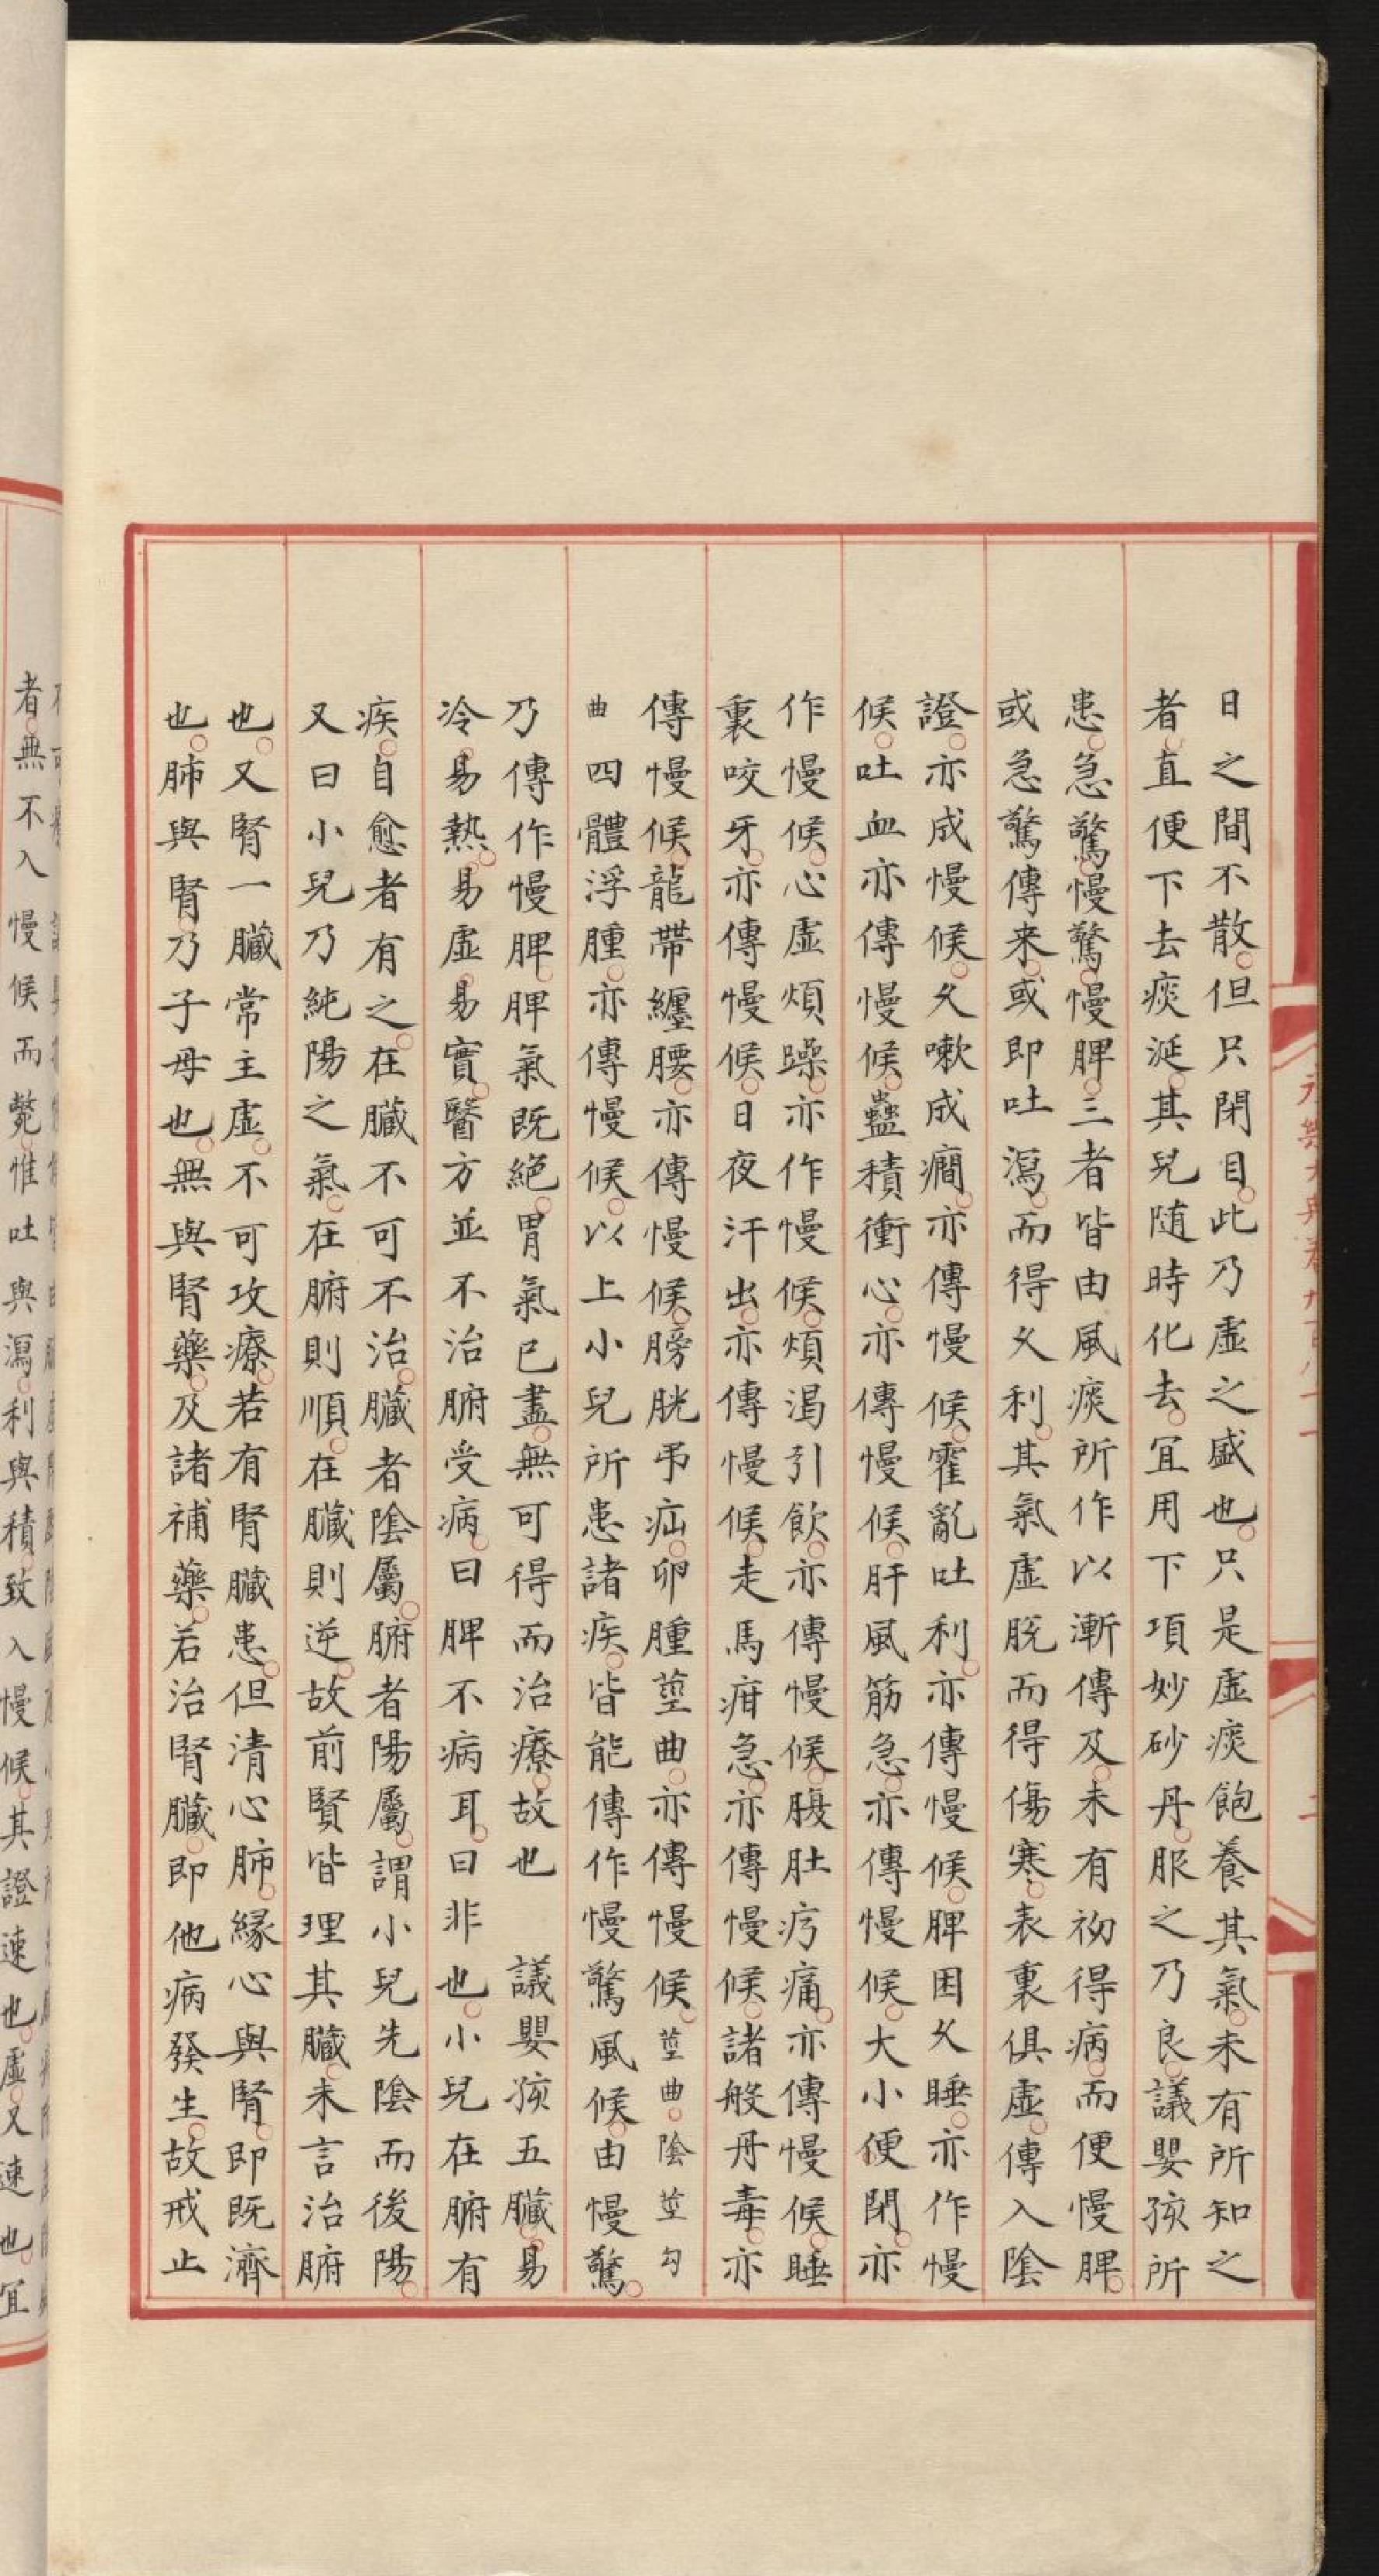 日之間不散但只閉目此乃虛之盛也只是虛痰飽養其氣未有所知之
者直便下去痰涎其兒随時化去宜用下項妙砂丹服之乃良議嬰孩所
患急驚慢驚慢脾三者皆由風痰所作以漸傳及未有初得病而便慢脾
或急驚傳来或即吐瀉而得久利其氣虛脫而得傷寒表裏俱虛傳入陰
證亦成慢候久嗽成癎亦傳慢候霍亂吐利亦傳慢候脾困久睡亦作慢
候吐血亦傳慢候蠱積衝心亦傳慢候肝風筋急亦傳慢候大小便閉亦
作慢候心虛煩躁亦作慢候煩渴引飲亦傳慢候腹肚疞痛亦傳慢候睡
裏咬牙亦傳慢候日夜汗出亦傳慢候走馬疳急亦傳慢候諸般丹毒亦
傳慢候龍帶纏腰亦傳慢候膀胱弔疝卵腫莖曲亦傳慢候莖曲陰莖勾
曲四體浮腫亦傳慢候以上小兒所患諸疾皆能傳作慢驚風候由慢驚
乃傳作慢脾脾氣既絕胃氣已盡無可得而治療故也 議嬰孩五臟易
冷易熱易虛易實醫方並不治腑受病曰脾不病耳曰非也小兒在腑有
疾自愈者有之在臟不可不治臟者陰屬腑者陽屬謂小兒先陰而後陽
又曰小兒乃純陽之氣在腑則順在臟則逆故前賢皆理其臟未言治腑
也又腎一臟常主虛不可攻療若有腎臟患但清心肺緣心與腎即既濟
也肺與腎乃子母也無與腎藥及諸補藥若治腎臟即他病發生故戒止
者無不入慢候而斃惟吐與瀉利與積致入慢候其證速也虛又速也宜